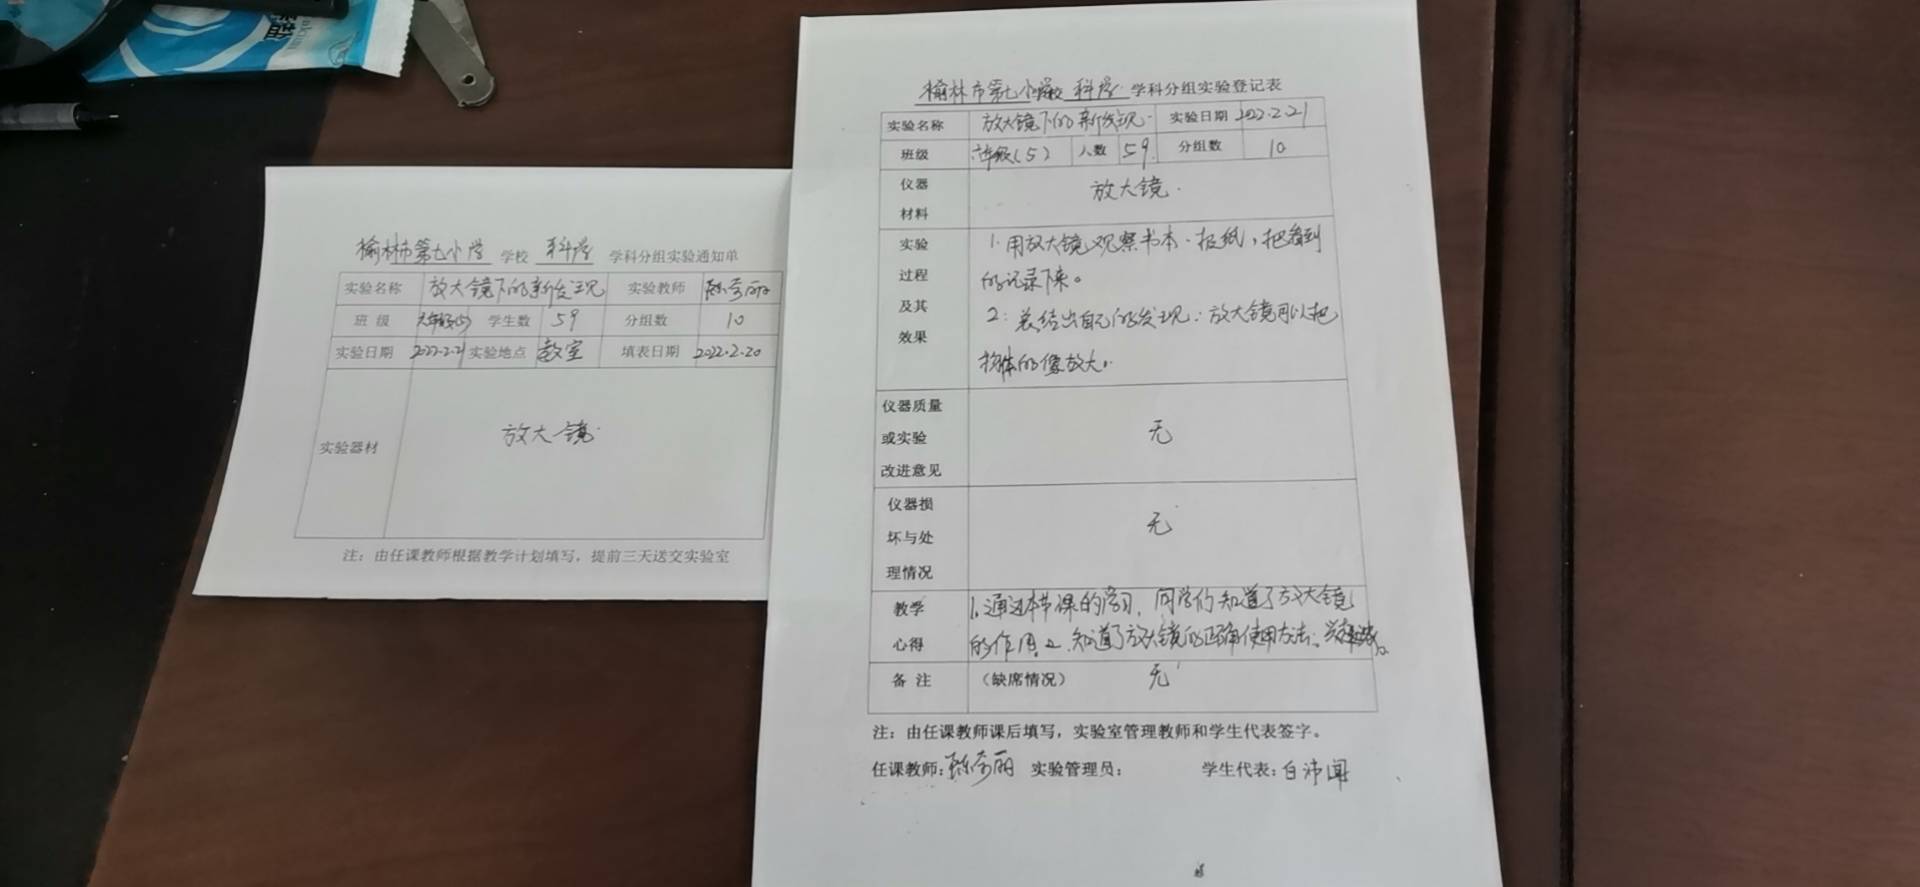 榆林市第七小学 学校 科学 学科分组实验通知单
实验名称 放大镜下的新发现 实验教师
班 级 六年级(5) 学生数 59 分组数 10
实验日期 2022.2.21 实验地点 教室 填表日期 2022.2.20
实验器材 放大镜
注：由任课教师根据教学计划填写，提前三天送交实验室
榆林市第七小学校 科学 学科分组实验登记表
实验名称 放大镜下的新发现 实验日期 2022.2.21
班级 六年级(5) 人数 59 分组数 10
仪器材料 放大镜
实验过程及其效果
1. 用放大镜观察书本、报纸，把看到
的记录下来。
2. 总结出自己的发现：放大镜可以把
物体的像放大。
仪器质量或实验改进意见 无
仪器损坏与处理情况 无
教学心得
1. 通过本节课的学习，同学们知道了放大镜
的作用。2. 知道了放大镜的正确使用方法。
备 注 （缺席情况） 无
注：由任课教师课后填写，实验室管理教师和学生代表签字。
任课教师： 实验管理员： 学生代表：白